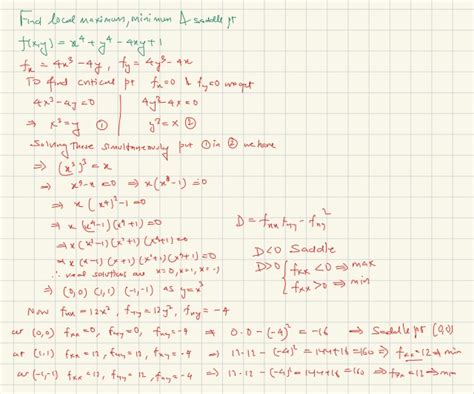 Find local maximum, minimum & saddle pt
f(x,y) = x⁴ + y⁴ - 4xy + 1
fx = 4x³ - 4y, fy = 4y³ - 4x
To find critical pt fx = 0 & fy = 0 we get
4x³ - 4y = 0 4y³ - 4x = 0
⇒ x³ = y ① y³ = x ②
Solving these simultaneously put ① in ② we have
⇒ (x³)³ = x
⇒ x⁹ - x = 0 ⇒ x(x⁸ - 1) = 0
⇒ x(x⁴)² - 1 = 0
⇒ x(x⁴ - 1)(x⁴ + 1) = 0
⇒ x(x² - 1)(x² + 1)(x⁴ + 1) = 0
⇒ x(x - 1)(x + 1)(x² + 1)(x⁴ + 1) = 0
∴ real solutions are x = 0, x = 1, x = -1
⇒ (0,0) (1,1) (-1,-1) as y = x³
D = fxx fyy - fxy²
D < 0 Saddle
D > 0 { fxx < 0 ⇒ max
fxx > 0 ⇒ min
Now fxx = 12x², fyy = 12y², fxy = -4
at (0,0) fxx = 0, fyy = 0, fxy = -4 ⇒ 0·0 - (-4)² = -16 ⇒ Saddle pt (0,0)
at (1,1) fxx = 12, fyy = 12, fxy = -4 ⇒ 12·12 - (-4)² = 144 + 16 = 160 ⇒ fxx = 12 ⇒ min
at (-1,-1) fxx = 12, fyy = 12, fxy = -4 ⇒ 12·12 - (-4)² = 144 + 16 = 160 ⇒ fxx = 12 ⇒ min